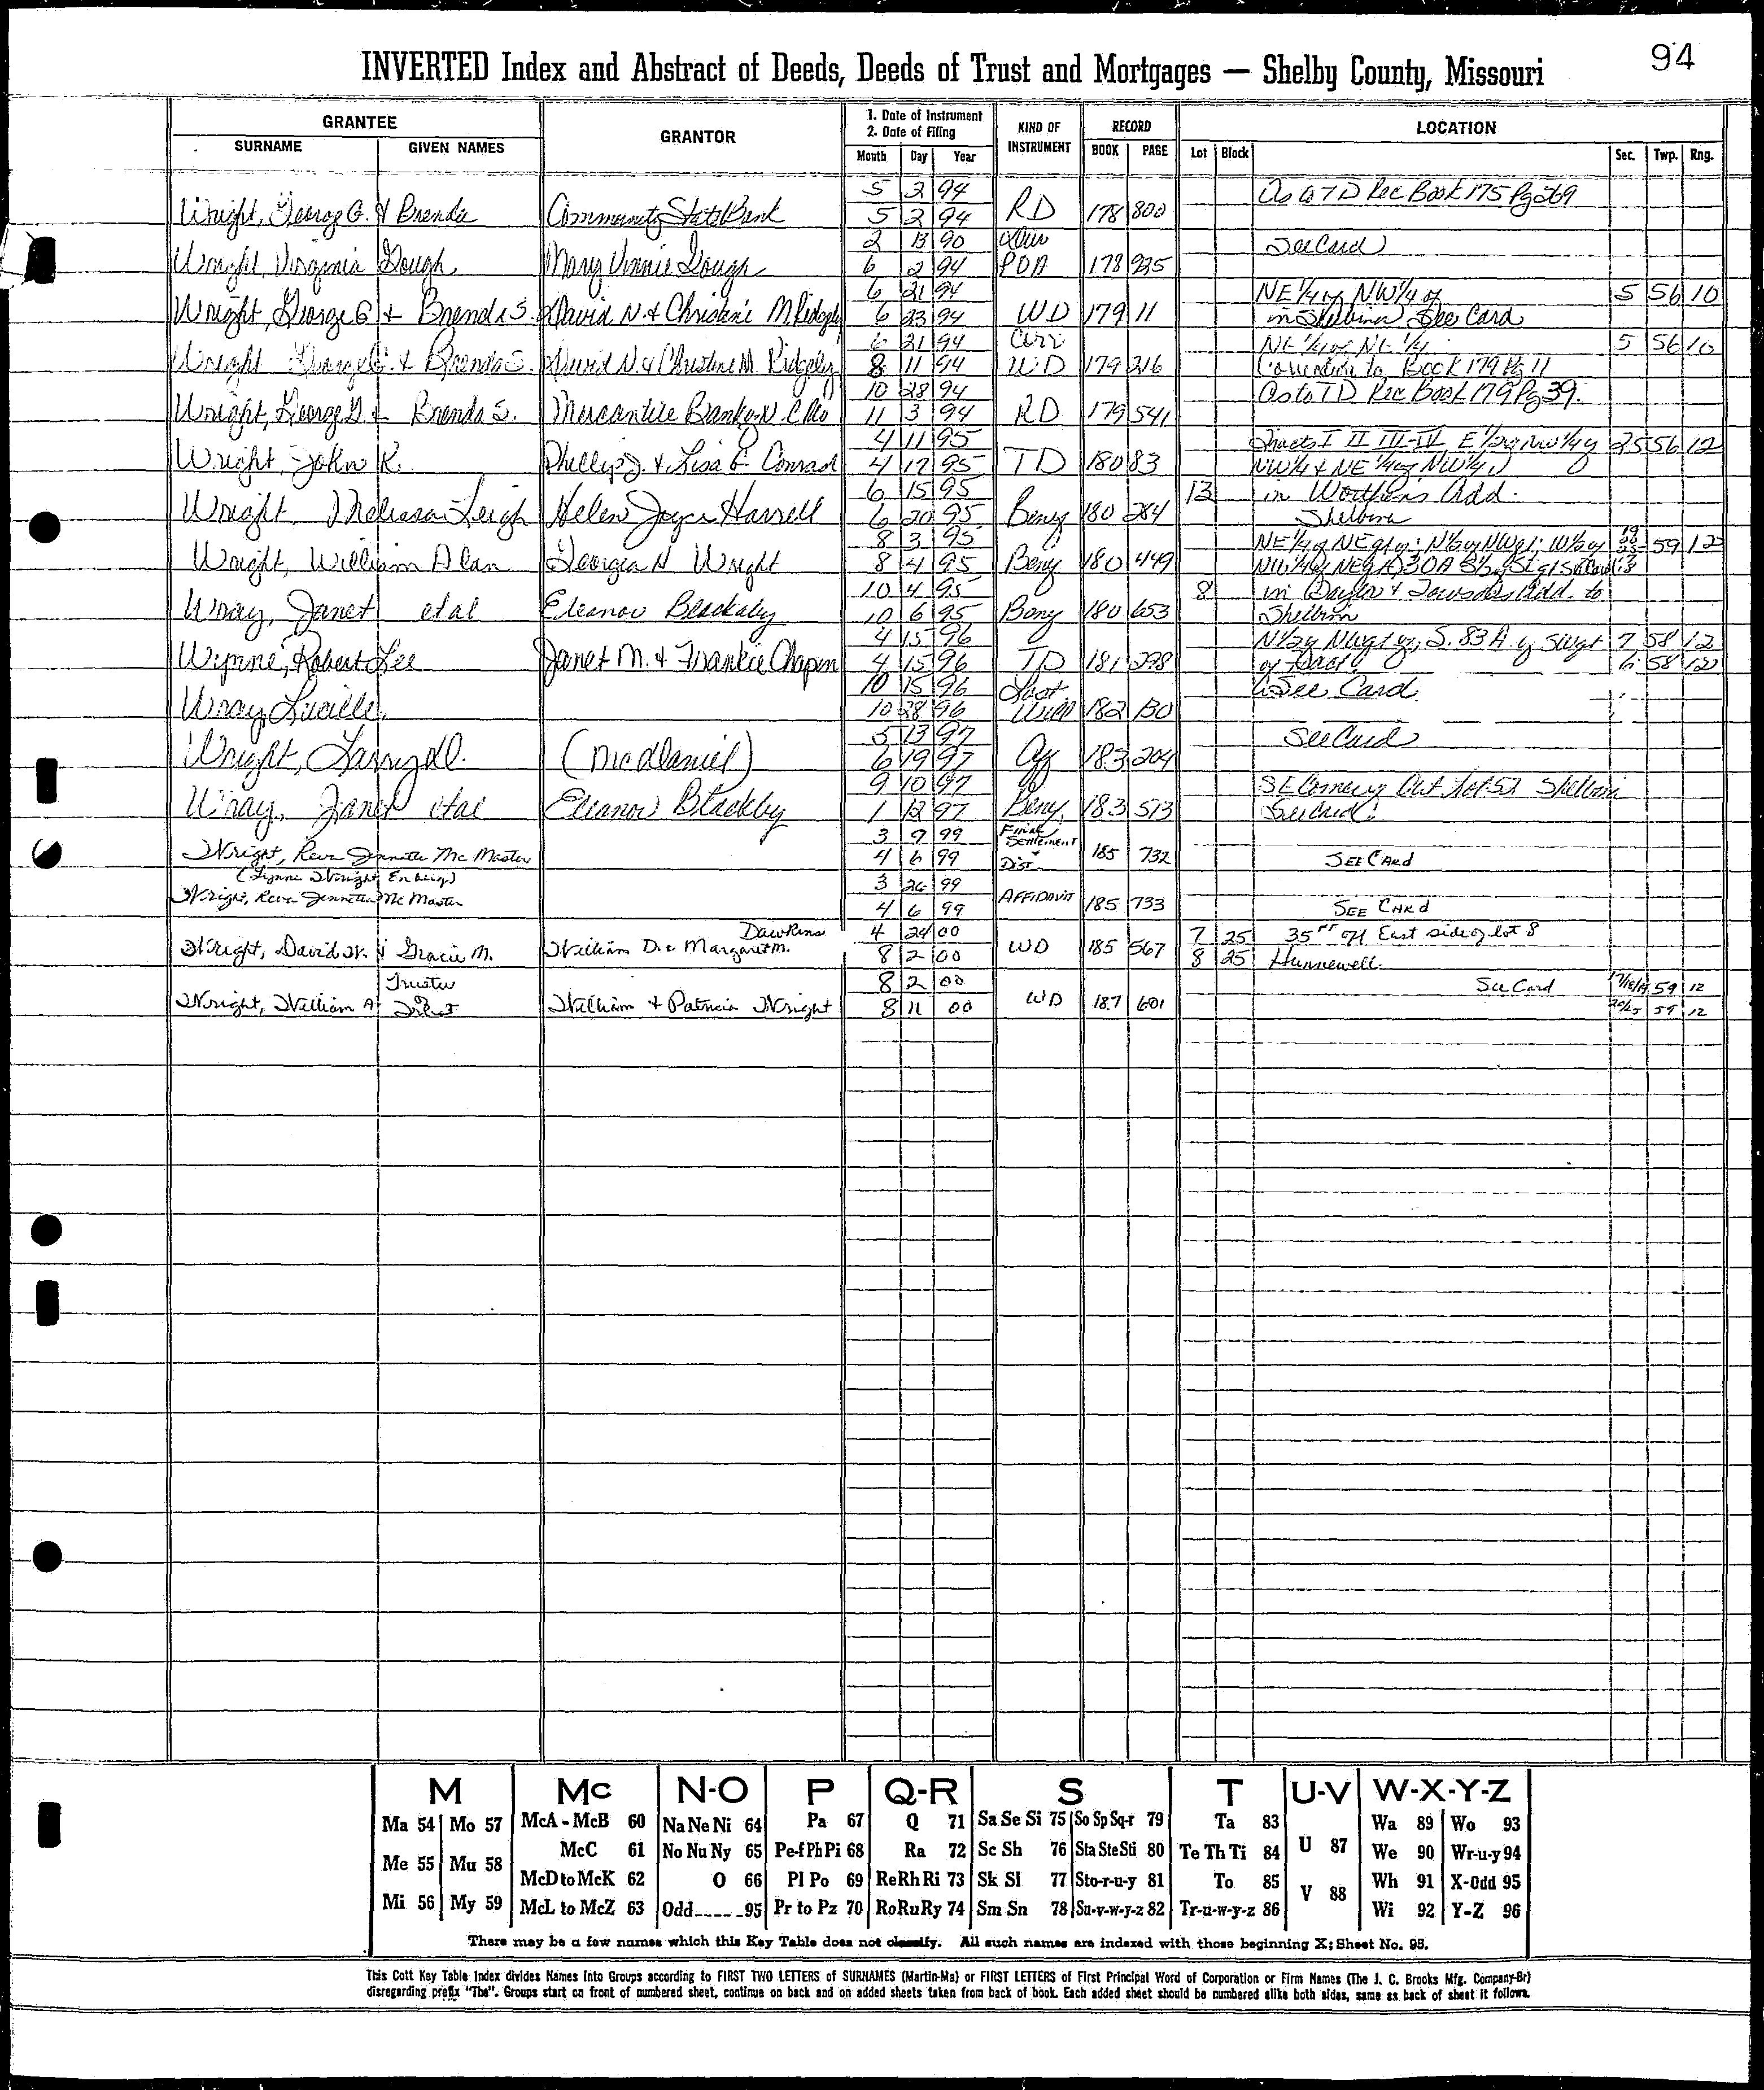 94
INVERTED Index and Abstract of Deeds, Deeds of Trust and Mortgages — Shelby County, Missouri
GRANTEE
SURNAME GIVEN NAMES
GRANTOR
1. Date of Instrument
2. Date of Filing
Month Day Year
KIND OF
INSTRUMENT
RECORD
BOOK PAGE
LOCATION
Lot Block Sec. Twp. Rng.
5 2 94 As to TD Rec Book 175 Pg 269
Wright, George G. & Brenda Community State Bank 5 2 94 RD 178 800
2 13 90 See Card
Wright, Virginia Gough Mary Vinnie Gough 6 2 94 POA 178 935
6 21 94 NE 1/4 of NW 1/4 of 5 56 10
Wright, George G & Brenda S. David N & Christine M Ridgely 6 23 94 WD 179 11 in Shelbina See Card
6 21 94 Corr NE 1/4 of NE 1/4 5 56 10
Wright George G. & Brenda S. David N & Christine M Ridgely 8 11 94 WD 179 216 Correction to Book 179 Pg 11
10 28 94 As to TD Rec Book 179 Pg 39.
Wright, George G & Brenda S. Mercantile Bank of N. C Mo 11 3 94 RD 179 541
4 11 95 Tracts I II III-IV E 1/2 of NW 1/4 of 25 56 12
Wright, John K. Phillip J. & Lisa E Conrad 4 17 95 TD 180 83 NW 1/4 & NE 1/4 of NW 1/4
6 15 95 13 in Worthens Add.
Wright Melissa Leigh Helen Joyce Harrell 6 20 95 Beny 180 284 Shelbina
8 3 95 NE 1/4 of NE qt of; N 1/2 of NW qt; W 1/2 of 59 12
Wright, William Alan Georgia N Wright 8 4 95 Beny 180 449
10 4 95 8 in Baylor & Towsons Add. to
Wray, Janet etal Eleanor Blackaby 10 6 95 Beny 180 653 Shelbina
4 15 96 N 1/2 of NW qt of; S. 83 A of SW qt 7 58 12
Wynne, Robert Lee Janet M. & Frankie Chapen 4 15 96 TD 181 298 6 58 12
10 15 96 Last See Card
Wray Lucille 10 28 96 Will 182 130
5 13 97 See Card
Wright, Larry D. (McDaniel) 6 19 97 Aff 183 204
9 10 97 SE Corner of Out Lot 52 Shelbina
Wray, Janet etal Eleanor Blackby 1 12 97 Beny. 183 513 See Card
3 9 99 Final Settlement
Wright, Reva Jennette Mc Master 4 6 99 & Dist 185 732 SEE CARD
(Lynne Wright Enberg)
3 26 99
Wright, Reva Jennette Mc Master 4 6 99 AFFIDAVIT 185 733 SEE CARD
Dawkins 4 24 00 7 25 35" off East side of lot 8
Wright, David W. & Gracie M. William D. & Margaret M. 8 2 00 WD 185 567 8 25 Hunnewell.
Trustee 8 2 00 See Card 59 12
Wright, William A Trust William & Patricia Wright 8 11 00 WD 187 601 59 12
M Mc N-O P Q-R S T U-V W-X-Y-Z
Ma 54 Mo 57 McA - McB 60 Na Ne Ni 64 Pa 67 Q 71 Sa Se Si 75 So Sp Sq-r 79 Ta 83 Wa 89 Wo 93
Me 55 Mu 58 McC 61 No Nu Ny 65 Pe-f Ph Pi 68 Ra 72 Sc Sh 76 Sta Ste Sti 80 Te Th Ti 84 U 87 We 90 Wr-u-y 94
McD to McK 62 O 66 Pl Po 69 Re Rh Ri 73 Sk Sl 77 Sto-r-u-y 81 To 85 V 88 Wh 91 X-Odd 95
Mi 56 My 59 McL to McZ 63 Odd_____95 Pr to Pz 70 Ro Ru Ry 74 Sm Sn 78 Su-v-w-y-z 82 Tr-u-w-y-z 86 Wi 92 Y-Z 96
There may be a few names which this Key Table does not classify. All such names are indexed with those beginning X; Sheet No. 95.
This Cott Key Table Index divides Names into Groups according to FIRST TWO LETTERS of SURNAMES (Martin-Ma) or FIRST LETTERS of First Principal Word of Corporation or Firm Names (The J. C. Brooks Mfg. Company-Br)
disregarding prefix "The". Groups start on front of numbered sheet, continue on back and on added sheets taken from back of book. Each added sheet should be numbered alike both sides, same as back of sheet it follows.